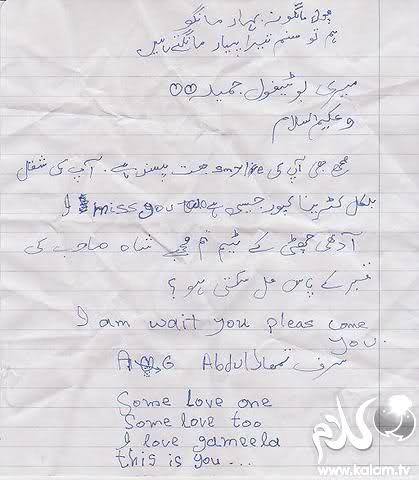 پھول مانگو نہ بہار مانگو
ہم تو صنم تیرا پیار مانگتے ہیں
میری بوٹیفول جمیلہ
وعلیکم اسلام
مجھے جی آپ کی smylire بہت پسند ہے. آپ کی شقل
بلکل کٹرینا کپور جیسی ہے I miss you too
آدھی چھٹی کے ٹیم تم مجھے شاہ صاحب کی
قبر کے پاس مل سکتی ہو؟
I am wait you pleas come
you.
صرف تمھارا Abdul A G
Some love one
Some love too
I love gameela
this is you...
کلام
www.kalam.tv